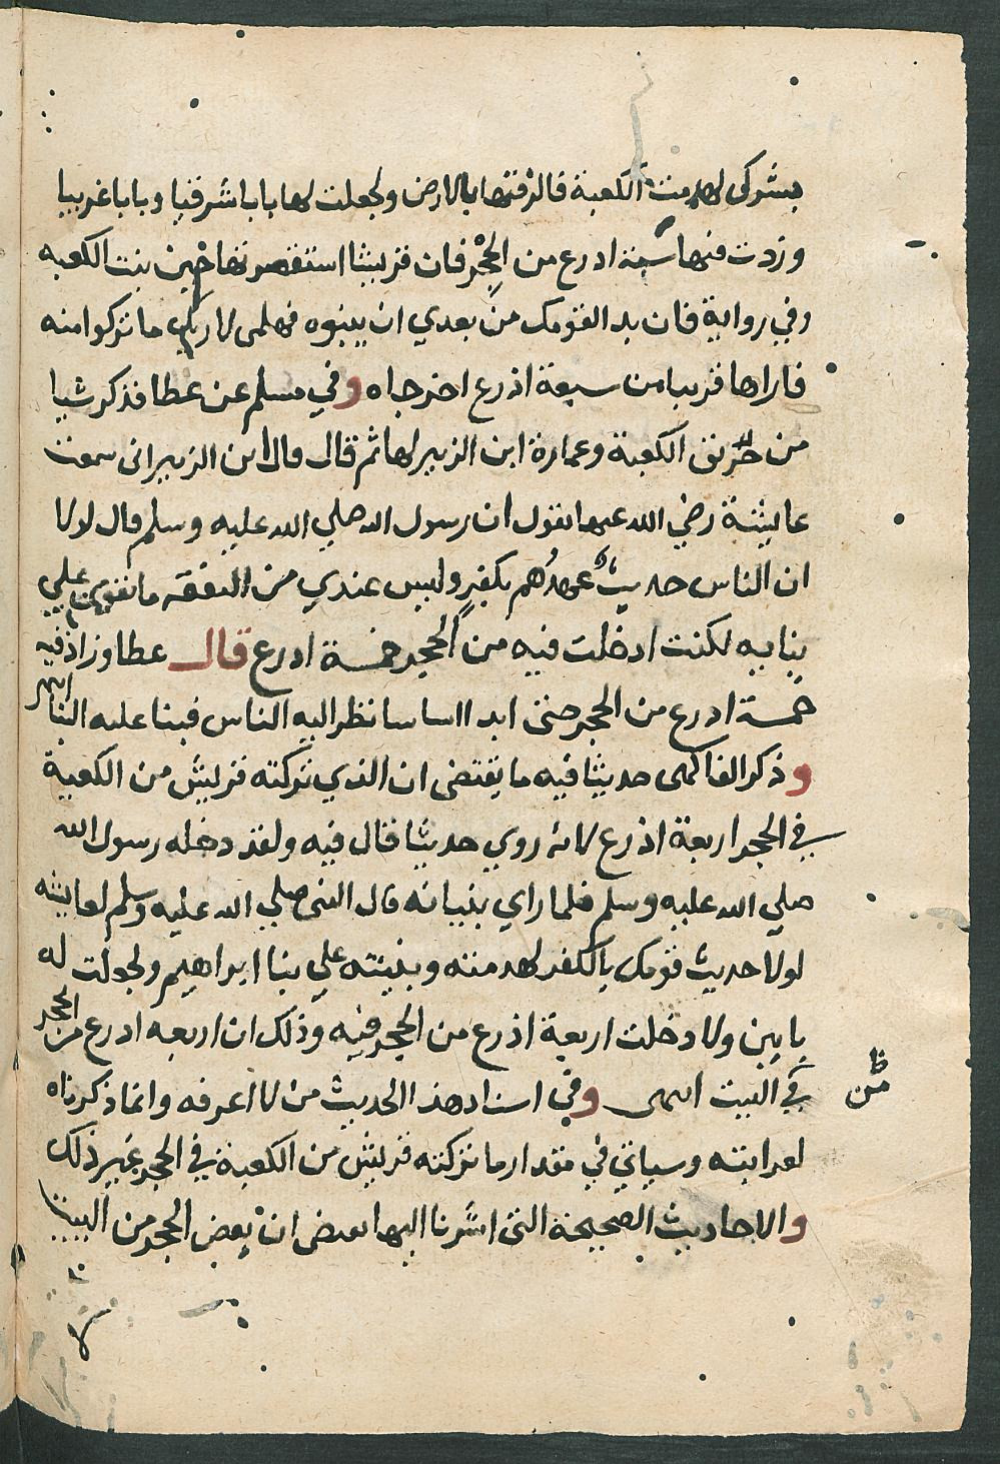 بشرك لهدمت الكعبة فالزقتها بالارض ولجعلت لها بابا شرقيا وبابا غربيا
وزدت فيها ستة اذرع من الحجر فان قريشا استقصرتها حين بنت الكعبه
وفي رواية فان بدا لقومك من بعدي ان يبنوه فهلمى لاريك ما تركوا منه
فاراها قريبا من سبعة اذرع اخرجاه وفي مسلم عن عطا فذكر شيا
من حريق الكعبة وعمارة ابن الزبير لها ثم قال قال ابن الزبير انى سمعت
عايشة رضي الله عنها تقول ان رسول الله صلي الله عليه وسلم قال لولا
ان الناس حديث عهدهم بكفر وليس عندي من النفقه ما تقوي علي
بنايه لكنت ادخلت فيه من الحجر خمسة اذرع قال عطا وزاد فيه
خمسة اذرع من الحجر حتى ابدا اساسا نظر اليه الناس فبنا عليه البنا انتهى
وذكر الفاكهى حديثا فيه ما يقتضى ان الذي تركته قريش من الكعبة
في الحجر اربعة اذرع لانه روي حديثا قال فيه ولقد دخله رسول الله
صلي الله عليه وسلم فلما راي بنيانه قال النبى صلي الله عليه وسلم لعايشه
لولا حديث قومك بالكفر لهدمته وبنيته علي بنا ابراهيم ولجعلت له
بابين ولادخلت اربعة اذرع من الحجر فيه وذلك ان اربعه اذرع من الحجر
في البيت انتهى وفي اسناد هذا الحديث من لا اعرفه وانما ذكرناه
لغرابته وسياتي في مقدار ما تركته قريش من الكعبة في الحجر غير ذلك
والاحاديث الصحيحة التى اشرنا اليها تقتضى ان بعض الحجر من البيت